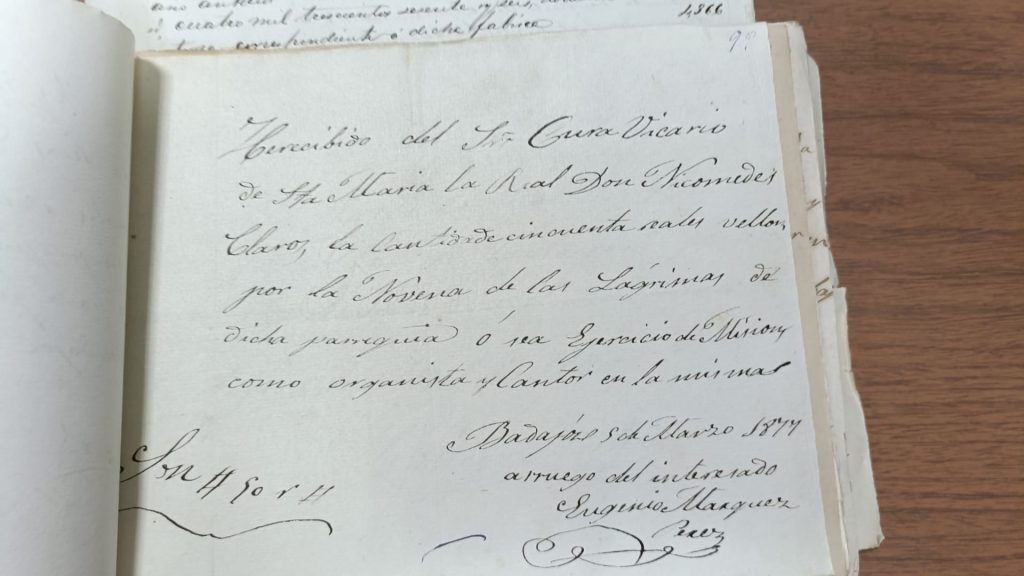 ano anterio
cuatro mil trescientos sesenta y seis,
4,366
correspondiente a dicha fabrica
Herecibido del Sor. Cura Vicario
de Sta Maria la Real Don Nicomedes
Claros, la Cantidad e cincuenta reales vellon,
por la Novena de las Lágrimas de
dicha parroquia ó sea Ejercicio de Mision,
como organista y Cantor en la misma
Badajóz 5 de Marzo 1877
arruego del interesado
Eugenio Marquez
Perez
Son # 50 r #